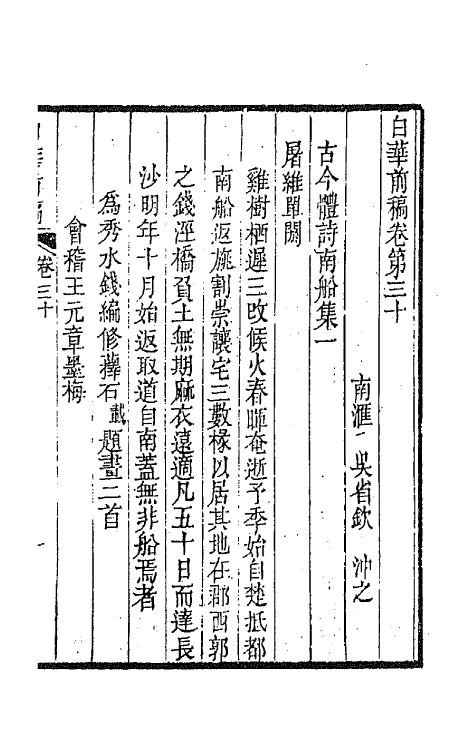 白華前稿卷第三十
南滙　吳省欽　沖之
古今體詩南船集一
屠維單閼
雞樹栖遲三改候火春暉奄逝予季始自楚抵都
南船返旐割崇讓宅三數椽以居其地在郡西郭
之錢涇橋負土無期麻衣遠適凡五十日而達長
沙明年十月始返取道自南蓋無非船焉者
為秀水錢編修蘀石載題畫二首
會稽王元章墨梅
白華前稿　卷三十　一